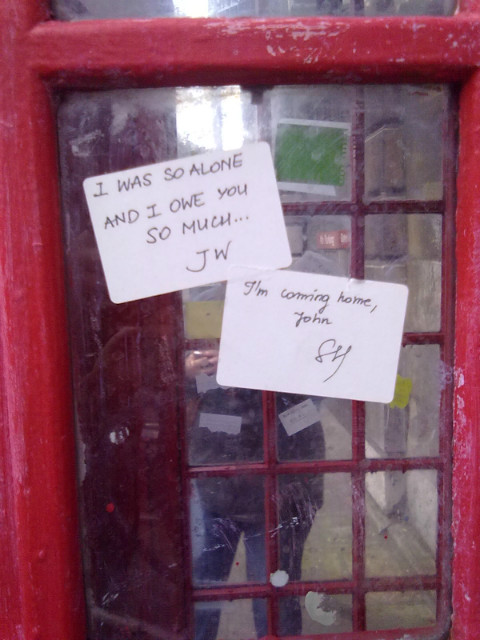 I WAS SO ALONE
AND I OWE YOU
SO MUCH...
JW
I'm coming home,
John
SH